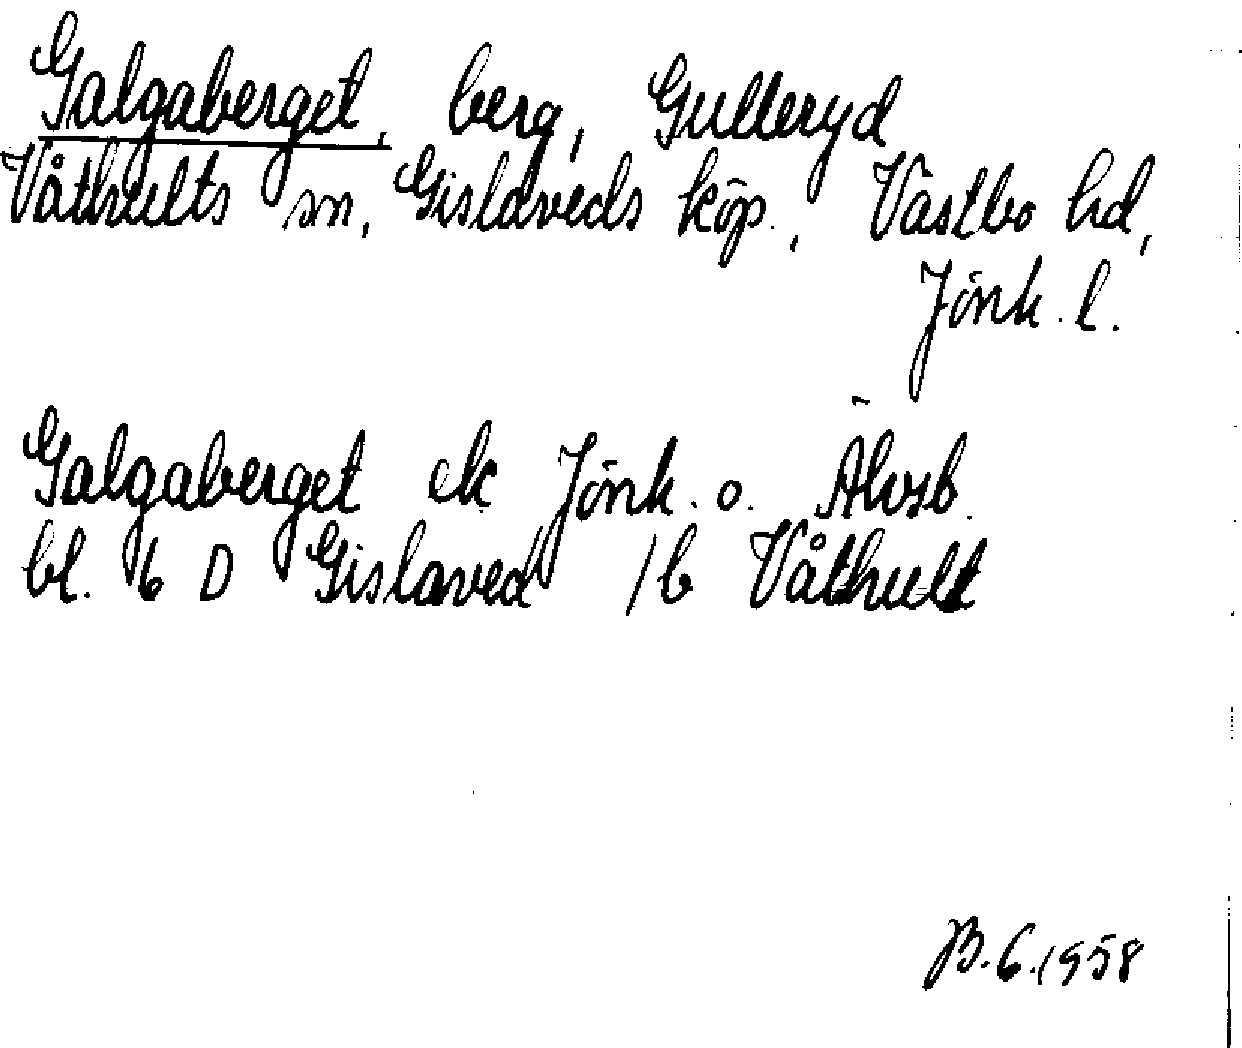 Galgaberget, berg, Gulleryd
Våthults sn, Gislaveds köp., Västbo hd,
Jönk. l.
Galgaberget ek Jönk. o. Älvsb.
bl. 6 D Gislaved /b Våthult
B.G.1958